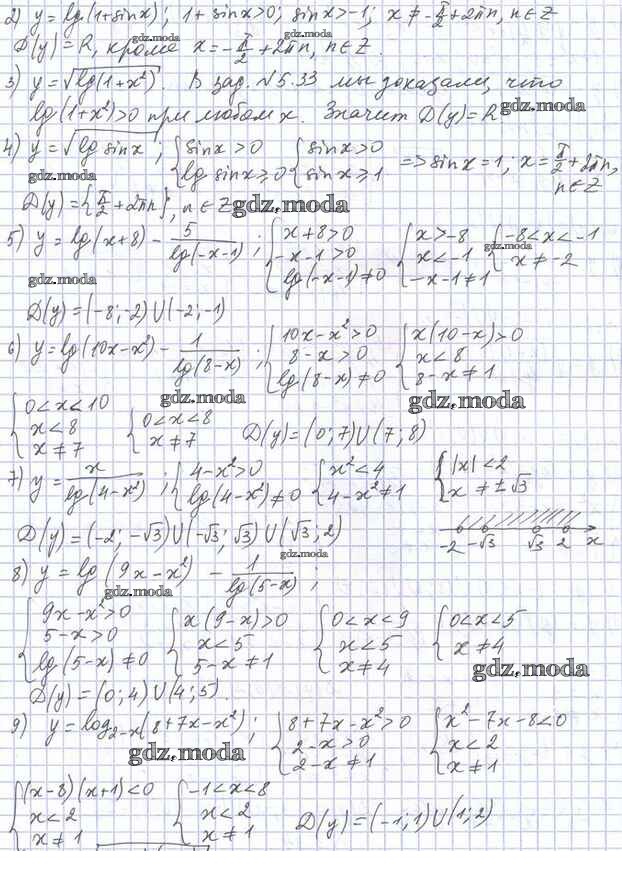 2) y = lg(1+sinx); 1+sinx>0; sinx>-1; x≠-π/2+2πn, n∈Z
D(y)=R, кроме x=-π/2+2πn, n∈Z.
3) y=√lg(1+x²). В зад. №5.33 мы доказали, что
lg(1+x²)>0 при любом x. Значит D(y)=R
4) y=√lg sinx; {sinx>0 lg sinx≥0 {sinx>0 sinx≥1 =>sinx=1; x=π/2+2πn, n∈Z
D(y)={π/2+2πn}, n∈Z
5) y=lg(x+8)-5/lg(-x-1); {x+8>0 -x-1>0 lg(-x-1)≠0 {x>-8 x<-1 -x-1≠1 {-8<x<-1 x≠-2
D(y)=(-8;-2)∪(-2;-1)
6) y=lg(10x-x²)-1/lg(8-x); {10x-x²>0 8-x>0 lg(8-x)≠0 {x(10-x)>0 x<8 8-x≠1
{0<x<10 x<8 x≠7 {0<x<8 x≠7 D(y)=(0;7)∪(7;8)
7) y=x/lg(4-x²); {4-x²>0 lg(4-x²)≠0 {x²<4 4-x²≠1 {|x|<2 x≠±√3
D(y)=(-2;-√3)∪(-√3;√3)∪(√3;2) -2 -√3 √3 2 x
8) y=lg(9x-x²)-1/lg(5-x);
{9x-x²>0 5-x>0 lg(5-x)≠0 {x(9-x)>0 x<5 5-x≠1 {0<x<9 x<5 x≠4 {0<x<5 x≠4
D(y)=(0;4)∪(4;5).
9) y=log₂₋ₓ(8+7x-x²); {8+7x-x²>0 2-x>0 2-x≠1 {x²-7x-8<0 x<2 x≠1
{(x-8)(x+1)<0 x<2 x≠1 {-1<x<8 x<2 x≠1 D(y)=(-1;1)∪(1;2)
gdz.moda
gdz.moda
gdz.moda
gdz.moda
gdz.moda
gdz.moda
gdz.moda
gdz.moda
gdz.moda
gdz.moda
gdz.moda
gdz.moda
gdz.moda
gdz.moda